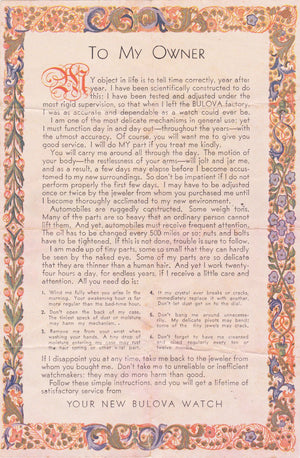 TO MY OWNER
MY object in life is to tell time correctly, year after
year. I have been scientifically constructed to do
this: I have been tested and adjusted under the
most rigid supervision, so that when I left the BULOVA factory,
I was as accurate and dependable as a watch could ever be.
I am one of the most delicate mechanisms in general use; yet
I must function day in and day out—throughout the years—with
the utmost accuracy. Of course, you will want me to give you
good service. I will do MY part if you treat me kindly.
You will carry me around all through the day. The motion of
your body—the restlessness of your arms—will jolt and jar me,
and as a result, a few days may elapse before I become accus-
tomed to my new surroundings. So don't be impatient if I do not
perform properly the first few days. I may have to be adjusted
once or twice by the jeweler from whom you purchased me until
I become thoroughly acclimated to my new environment.
Automobiles are ruggedly constructed. Some weigh tons.
Many of the parts are so heavy that an ordinary person cannot
lift them. And yet, automobiles must receive frequent attention.
The oil has to be changed every 500 miles or so; nuts and bolts
have to be tightened. If this is not done, trouble is sure to follow.
I am made up of tiny parts, some so small that they can hardly
be seen by the naked eye. Some of my parts are so delicate
that they are thinner than a human hair. And yet I work twenty-
four hours a day, for endless years, if I receive a little care and
attention. All you need do is:
1. Wind me fully when you arise in the
morning. Your awakening hour is far
more regular than the bed-time hour.
2. Don't open the back of my case.
The tiniest speck of dust or moisture
may harm my mechanism.
3. Remove me from your wrist when
washing your hands. A tiny drop of
moisture entering my case may rust
the hair spring or other vital part.
4. If my crystal ever breaks or cracks,
immediately replace it with another.
Don't let dust get on to the dial.
5. Don't bang me around unneces-
sarily. My delicate pivots may bend;
some of the tiny jewels may crack.
6. Don't forget to have me cleaned
and oiled regularly every ten or
twelve months.
If I disappoint you at any time, take me back to the jeweler from
whom you bought me. Don't take me to unreliable or inefficient
watchmakers; they may do more harm than good.
Follow these simple instructions, and you will get a lifetime of
satisfactory service from
YOUR NEW BULOVA WATCH